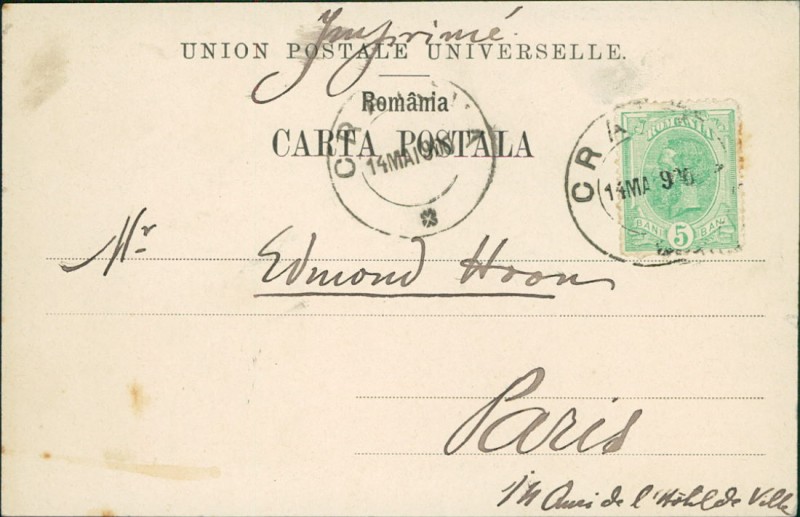 Imprimé.
UNION POSTALE UNIVERSELLE.
România
CARTA POSTALA
14 MAI 900
14 MAI 900
ROMANIA
BANI 5 BANI
Mr Edmond
Paris
de l'Hôtel de Ville